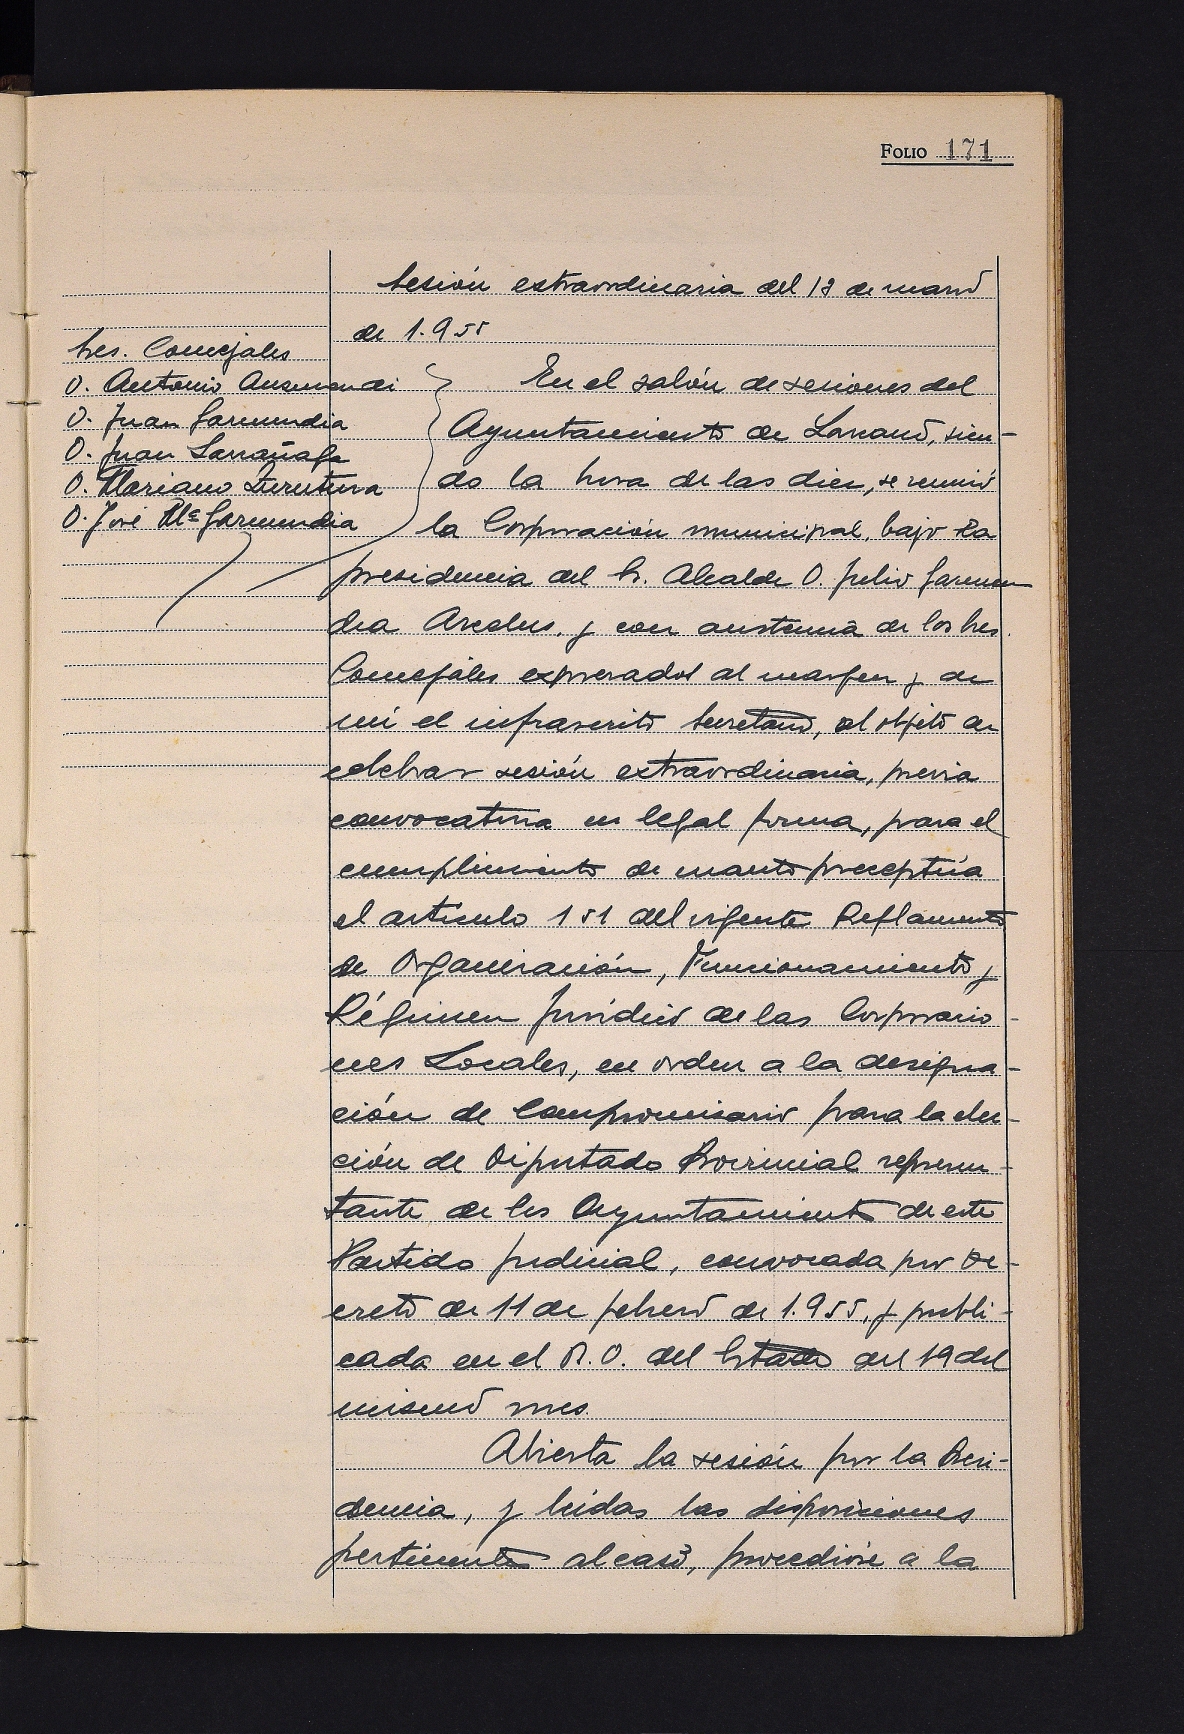 FOLIO 171
Sesión extraordinaria del 13 de marzo
de 1.955
Sres. Concejales
D. Antonio Ansumendi
D. Juan Garmendia
D. Juan Larrañaga
D. Mariano Iturrza
D. José Mª Garmendia
En el salón de sesiones del
Ayuntamiento de Larraul, sien-
do la hora de las diez, se reunió
la Corporación municipal, bajo la
presidencia del Sr. Alcalde D. Julio Garmen
dia Arcelus, y con asistencia de los Sres.
Concejales expresados al margen y de
mi el infrascrito Secretario, al objeto de
celebrar sesión extraordinaria, previa
convocatoria en legal forma, para el
cumplimiento de cuanto preceptúa
el artículo 151 del vigente Reglamento
de Organización, Funcionamiento y
Régimen Jurídico de las Corporacio-
nes Locales, en orden a la designa-
ción de Compromisario para la elec-
ción de Diputado Provincial represen-
tante de los Ayuntamientos de este
Partido Judicial, convocada por De-
creto de 11 de febrero de 1.955, y publi-
cada en el B.O. del Estado del 19 del
mismo mes.
Abierta la sesión por la Presi-
dencia, y leídas las disposiciones
pertinentes al caso, procedióse a la